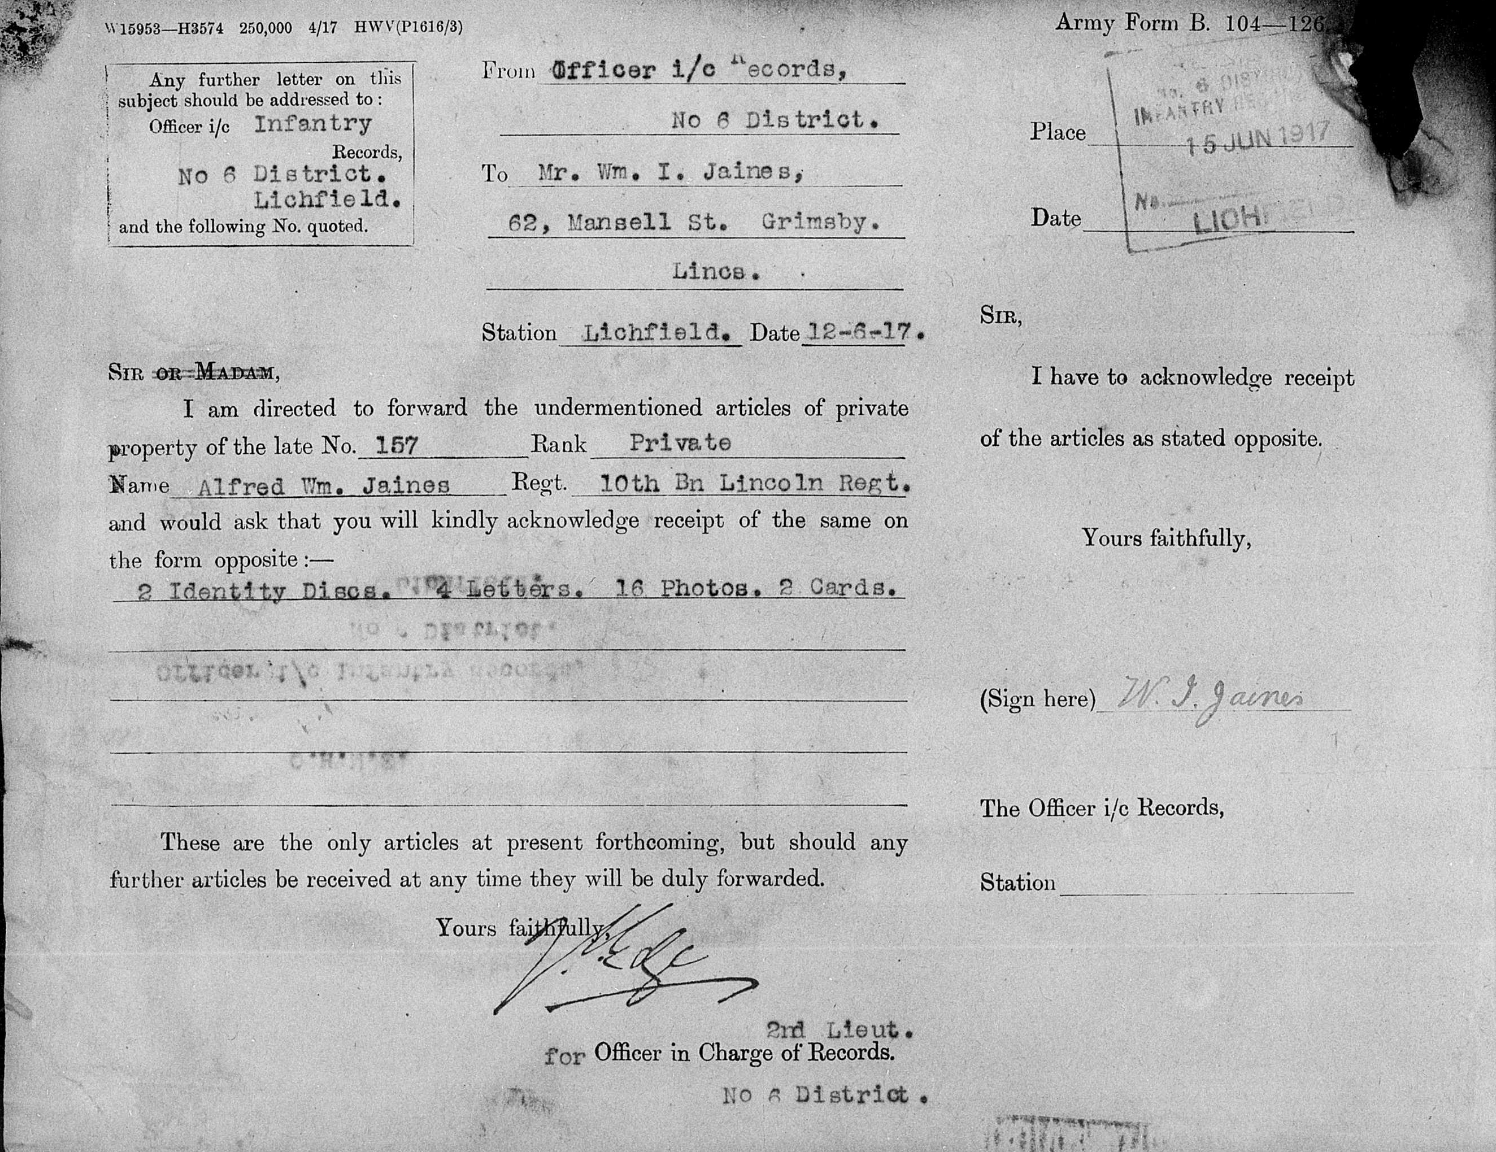 W 15953—H3574 250,000 4/17 HWV(P1616/3)
Army Form B. 104—126
Any further letter on this
subject should be addressed to :
Officer i/c Infantry
Records,
No 6 District.
Lichfield.
and the following No. quoted.
From Officer i/c Records,
No 6 District.
To Mr. Wm. I. Jaines,
62, Mansell St. Grimsby.
Lincs.
Station Lichfield. Date 12-6-17.
SIR OR MADAM,
I am directed to forward the undermentioned articles of private
property of the late No. 157 Rank Private
Name Alfred Wm. Jaines Regt. 10th Bn Lincoln Regt.
and would ask that you will kindly acknowledge receipt of the same on
the form opposite :—
2 Identity Discs. 4 Letters. 16 Photos. 2 Cards.
These are the only articles at present forthcoming, but should any
further articles be received at any time they will be duly forwarded.
Yours faithfully,
2nd Lieut.
for Officer in Charge of Records.
No 6 District.
Place
No. 6
INFANTRY
15 JUN 1917
No.
Date
LICHFIELD
SIR,
I have to acknowledge receipt
of the articles as stated opposite.
Yours faithfully,
(Sign here) W. I. Jaines
The Officer i/c Records,
Station